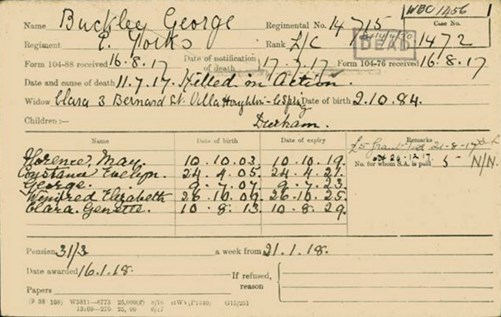 WBO 1A56 1
Name Buckley George Regimental No. 14715 Case No.
Regiment E. Yorks Rank L/C DEAD 1472
Form 104-88 received 16.8.17 Date of notification of death 17.7.17 Form 104-76 received 16.8.17
Date and cause of death 11.7.17. Killed in Action.
Widow Clara 3 Bernard St. Houghton-le-Spring Date of birth 2.10.84.
Children:— Durham.
Name Date of birth Date of expiry Remarks
Florence May. 10.10.03. 10.10.19. £5 Grant 21-8-17
Constance Evelyn. 24.4.05. 24.4.21. No. for whom S.A. is paid 5 N/N.
George. 9.7.07. 9.7.23.
Winifred Elizabeth 26.10.09. 26.10.25.
Clara. Genette. 10.8.13. 10.8.29.
Pension 31/3 a week from 21.1.18.
Date awarded 16.1.18. If refused, reason
Papers